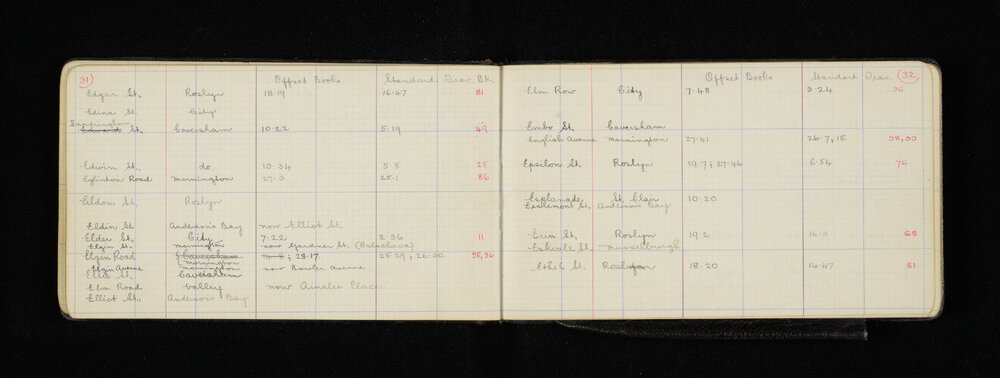 31 Offset Books Standard Trav. Bk.
Edgar St., Roslyn 18·19 16·47 81
Edina St. City
Sandringham
Edward St. Caversham 10·22 5·19 49
Edwin St., do. 10·34 5·8 25
Eglinton Road Mornington 27·3 25·1 86
Eildon St. Roslyn
Eldin St. Anderson's Bay now Elliot St.
Elder St., City 7·22 2·36 11
Elgin St. Mornington now Gardner St. (Balaclava)
Elgin Road Caversham Mornington ; 28·17 25·29, 26·30. 95,96
Elgin Avenue Mornington now Bowler Avenue
Ellis St. Caversham
Elm Road Valley now Ainslee Place.
Elliot St., Anderson's Bay
Offset Books Standard Trav. 32
Elm Row City 7·48 3·24 36
Embo St. Caversham
English Avenue Mornington 27·41 26·7,15. 98,99
Epsilon St. Roslyn 19·7; 27·46 6·54 76
Esplanade St. Clair 10·20
Anderson's Bay
Erin St. Roslyn 19·2 16·3 68
Eskvale St. Musselburgh
Ethel St. Roslyn 18·20 16·47 81